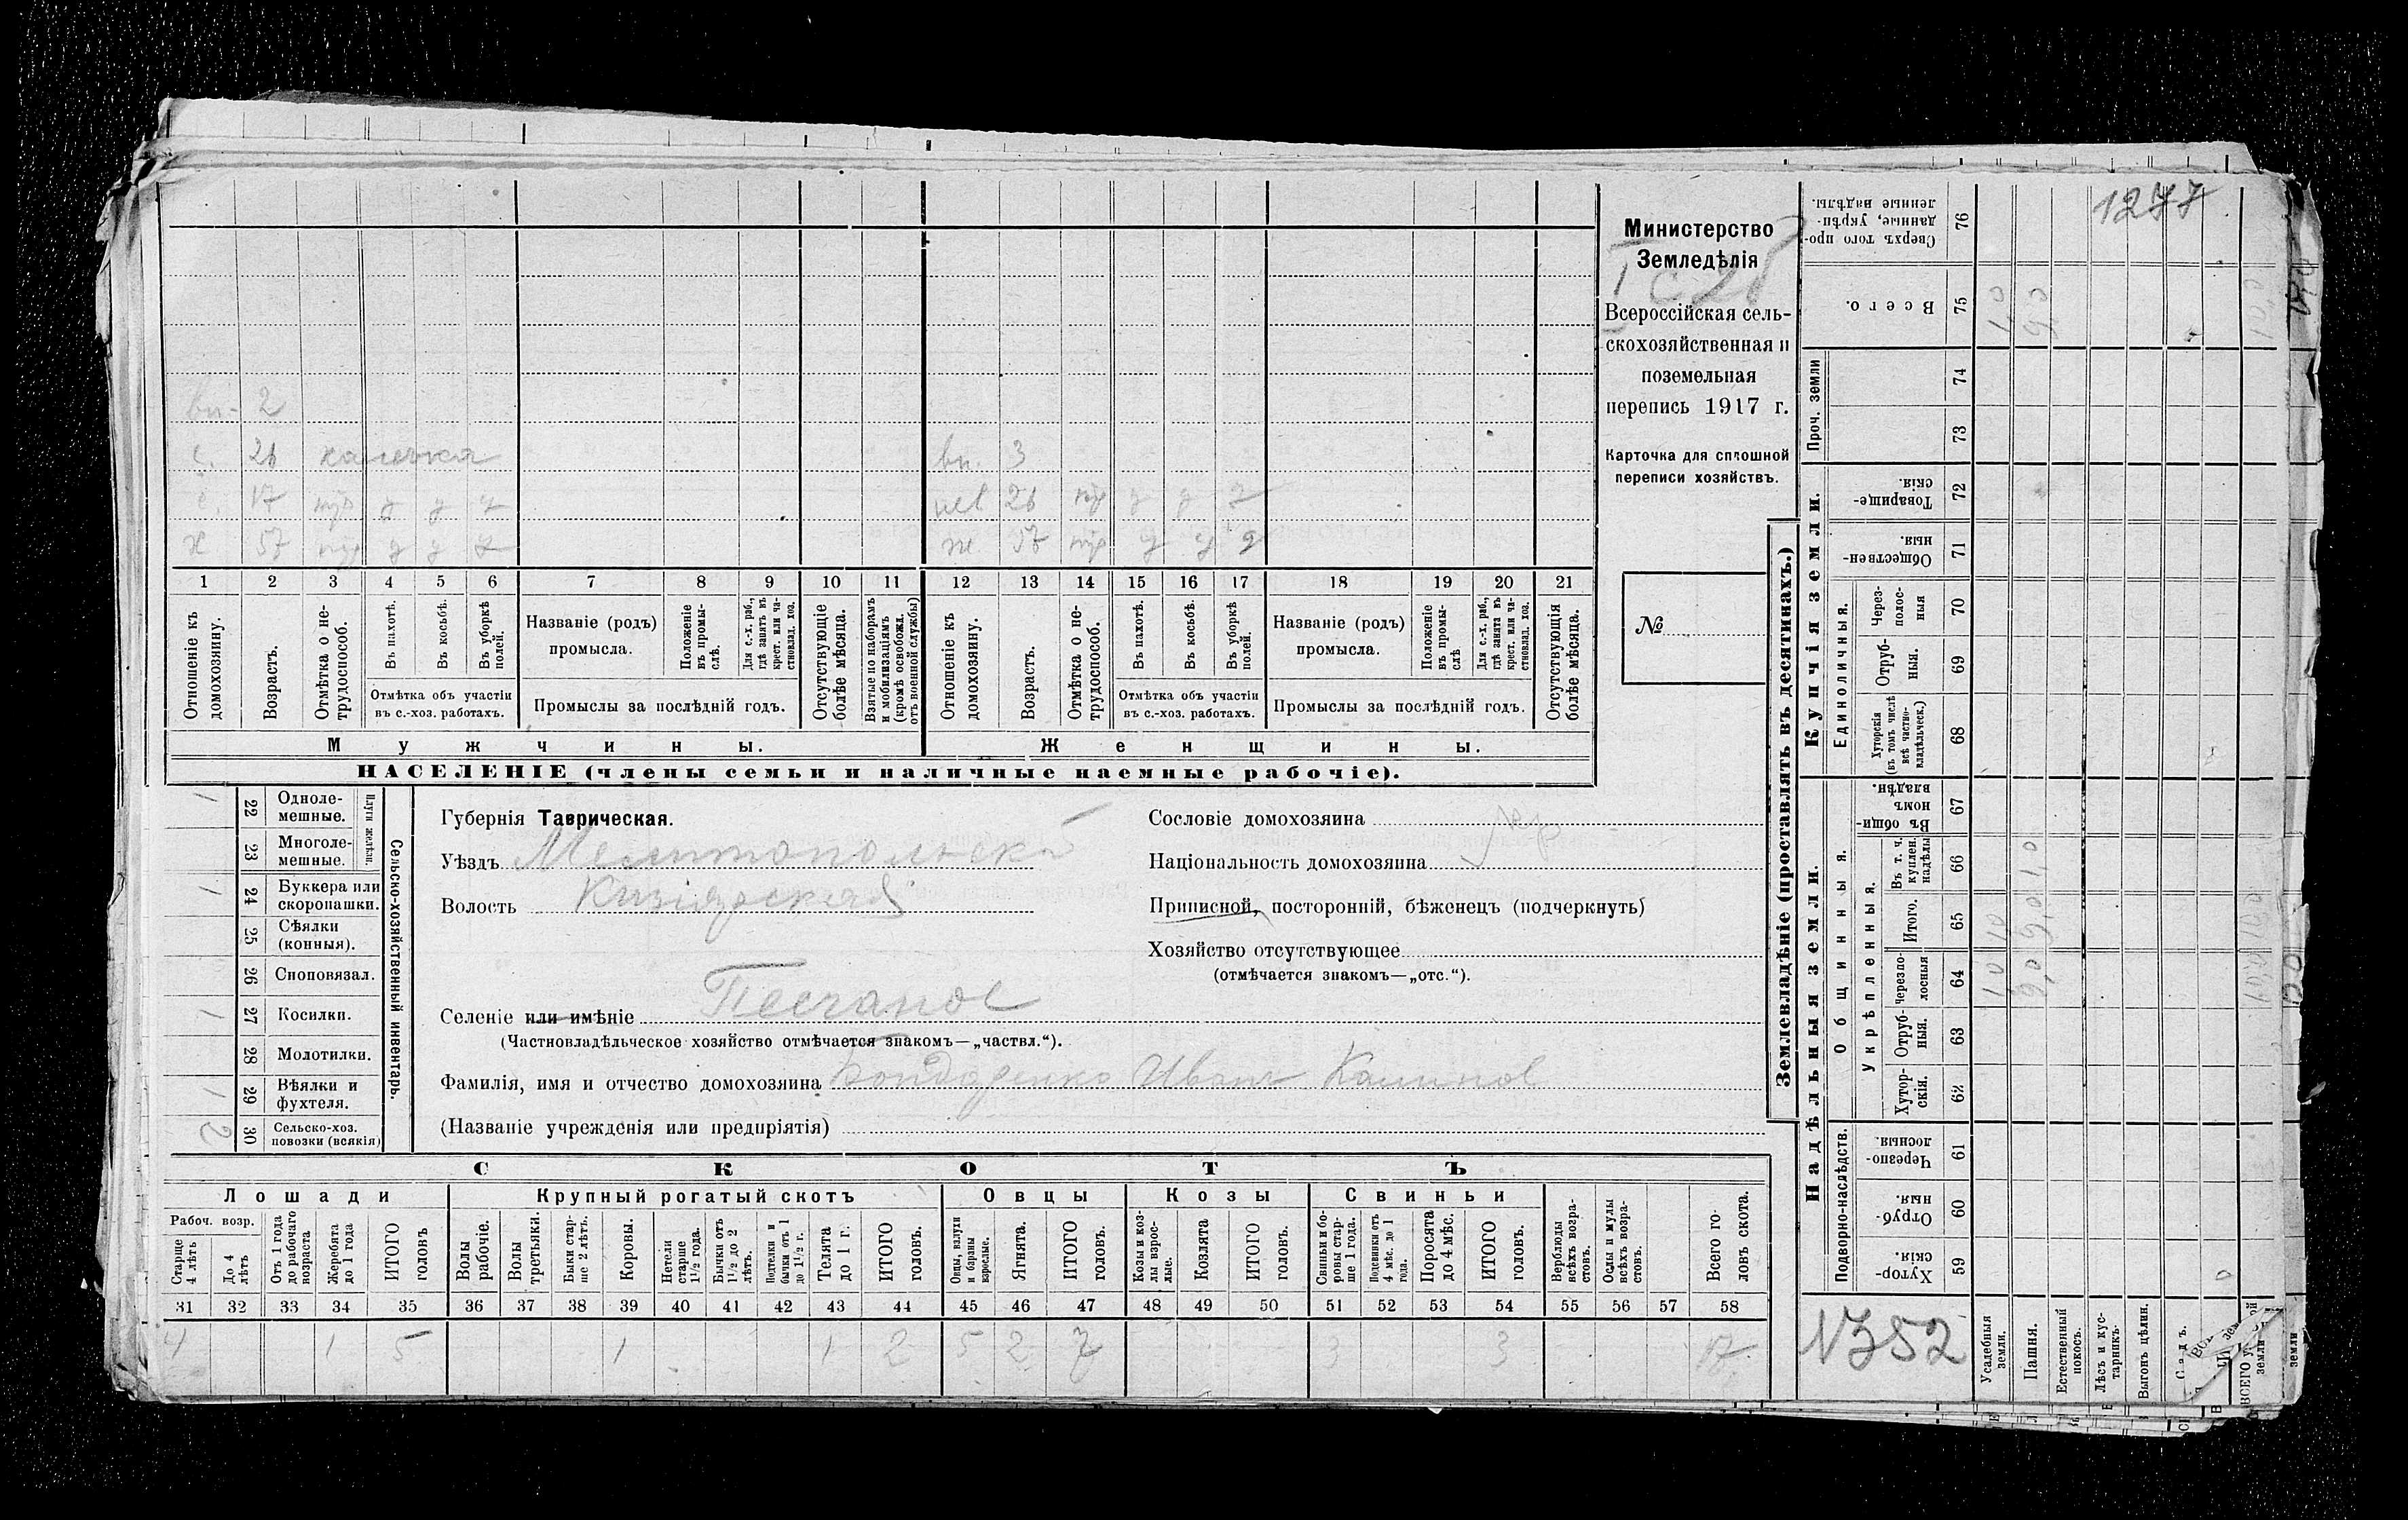 1277
Министерство
Земледѣлія
Всероссійская сель-
скохозяйственная и
поземельная
перепись 1917 г.
Карточка для сплошной
переписи хозяйствъ.
№
вн. 2
с. 26 калечка
с. 17
х 57
вн. 3
нев 26
ж 57
1 2 3 4 5 6 7 8 9 10 11 12 13 14 15 16 17 18 19 20 21
Отношеніе къ домохозяину.
Возрастъ.
Отмѣтка о не-трудоспособ.
Въ пахотѣ.
Въ косьбѣ.
Въ уборкѣ полей.
Отмѣтка объ участіи
въ с.-хоз. работахъ.
Названіе (родъ)
промысла.
Положеніе въ промы-слѣ.
Для с.-х. раб., гдѣ занятъ въ крест. или ча-стновлад. хоз.
Промыслы за послѣдній годъ.
Отсутствующіе болѣе мѣсяца.
Взятые по наборамъ и мобилизаціямъ (кромѣ освобожд. отъ военной службы)
Отношеніе къ домохозяину.
Возрастъ.
Отмѣтка о не-трудоспособ.
Въ пахотѣ.
Въ косьбѣ.
Въ уборкѣ полей.
Отмѣтка объ участіи
въ с.-хоз. работахъ.
Названіе (родъ)
промысла.
Положеніе въ промы-слѣ
Для с.-х. раб., гдѣ занята въ крест. или ча-стновлад. хоз.
Промыслы за послѣдній годъ.
Отсутствующія болѣе мѣсяца.
Мужчины.
Женщины.
НАСЕЛЕНІЕ (члены семьи и наличные наемные рабочіе).
Сельско-хозяйственный инвентарь.
Плуги желѣзн.
22 Одноле-мешные. 1
23 Многоле-мешные.
24 Буккера или скоропашки. 1
25 Сѣялки (конныя).
26 Сноповязал.
27 Косилки. 1
28 Молотилки.
29 Вѣялки и фухтеля. 1
30 Сельско-хоз. повозки (всякія) 2
Губернія Таврическая.
Уѣздъ Мелитопольскій
Волость Кизіярская
Селеніе или имѣніе Песчаное
(Частновладѣльческое хозяйство отмѣчается знакомъ—„частвл.“).
Фамилія, имя и отчество домохозяина Бондаренко Иванъ Калинов
(Названіе учрежденія или предпріятія)
Сословіе домохозяина
Національность домохозяина
Приписной, посторонній, бѣженецъ (подчеркнуть)
Хозяйство отсутствующее
(отмѣчается знакомъ—„отс.“).
СКОТЪ
Лошади
Крупный рогатый скотъ
Овцы
Козы
Свиньи
Рабоч. возр.
Старще 4 лѣтъ
До 4 лѣтъ
Отъ 1 года до рабочаго возраста
Жеребята до 1 года
ИТОГО головъ
Волы рабочіе.
Волы третьяки.
Быки стар-ше 2 лѣтъ.
Коровы.
Нетели старше 1½ года.
Бычки отъ 1½ до 2 лѣтъ.
Подтелки и бычки отъ 1 до 1½ г.
Телята до 1 г.
ИТОГО головъ.
Овцы, валухи и бараны взрослые.
Ягнята.
ИТОГО головъ.
Козы и коз-лы взрос-лые.
Козлята
ИТОГО головъ.
Свиньи и бо-ровы стар-ше 1 года.
Подсвинки отъ 4 мѣс. до 1 года.
Поросята до 4 мѣс.
ИТОГО головъ.
Верблюды всѣхъ возра-стовъ.
Ослы и мулы всѣхъ возра-стовъ.
Всего го-ловъ скота.
31 32 33 34 35 36 37 38 39 40 41 42 43 44 45 46 47 48 49 50 51 52 53 54 55 56 57 58
4 1 5 1 1 2 5 2 7 3 3 17
Землевладѣніе (проставлять въ десятинахъ.)
Надѣльныя земли.
Купчія земли.
Подворно-наслѣдств.
Общинныя.
Укрѣпленныя.
Единоличныя.
Проч. земли
76 Сверхъ того про-данные, укрѣп-ленные надѣлы.
75 Всего.
74
73
72 Товарище-скія.
71 Обществен-ныя.
70 Через-полос-ныя
69 Отруб-ныя.
68 Хуторскія (въ томъ числѣ всѣ частно-владѣльческ.)
67 Въ общи-номъ владѣн.
66 Въ т. ч. куплен. надѣлы
65 Итого.
64 Черезпо-лосныя
63 Отруб-ныя.
62 Хутор-скія.
61 Черезпо-лосныя.
60 Отруб-ныя.
59 Хутор-скія.
N352
Усадебныя земли.
Пашня.
Естественный покосъ.
Лѣсъ и кус-тарникъ.
Выгонъ цѣлин.
Садъ.
земли